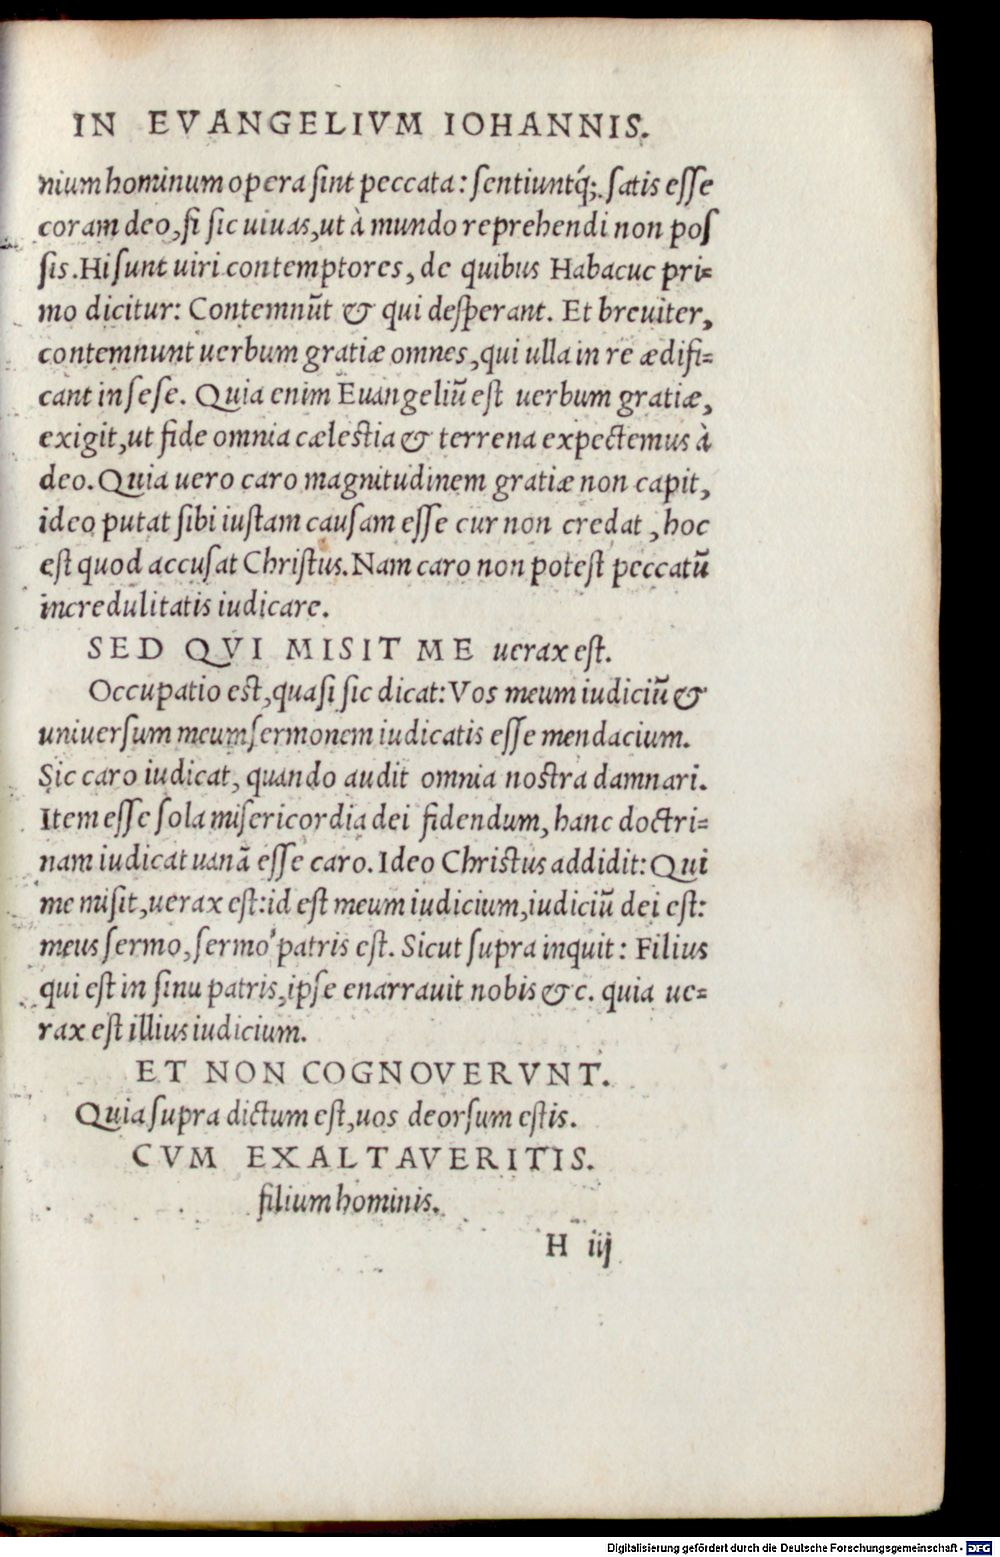 IN EVANGELIVM IOHANNIS.
nium hominum opera ſint peccata: ſentiuntq́;. ſatis eſſe
coram deo, ſi ſic uiuas, ut à mundo reprehendi non poſ
ſis. Hi ſunt uiri contemptores, de quibus Habacuc pri=
mo dicitur: Contemnūt & qui deſperant. Et breuiter,
contemnunt uerbum gratiæ omnes, qui ulla in re ædifi=
cant in ſeſe. Quia enim Euangeliū eſt uerbum gratiæ,
exigit, ut fide omnia cæleſtia & terrena expectemus à
deo. Quia uero caro magnitudinem gratiæ non capit,
ideo putat ſibi iuſtam cauſam eſſe cur non credat, hoc
eſt quod accuſat Chriſtus. Nam caro non poteſt peccatū
incredulitatis iudicare.
SED QVI MISIT ME uerax eſt.
Occupatio eſt, quaſi ſic dicat: Vos meum iudiciū &
uniuerſum meum ſermonem iudicatis eſſe mendacium.
Sic caro iudicat, quando audit omnia noſtra damnari.
Item eſſe ſola miſericordia dei fidendum, hanc doctri=
nam iudicat uanā eſſe caro. Ideo Chriſtus addidit: Qui
me miſit, uerax eſt: id eſt meum iudicium, iudiciū dei eſt:
meus ſermo, ſermo patris eſt. Sicut ſupra inquit: Filius
qui eſt in ſinu patris, ipſe enarrauit nobis &c. quia ue=
rax eſt illius iudicium.
ET NON COGNOVERVNT.
Quia ſupra dictum eſt, uos deorſum eſtis.
CVM EXALTAVERITIS.
filium hominis.
H iij
Digitalisierung gefördert durch die Deutsche Forschungsgemeinschaft - DFG